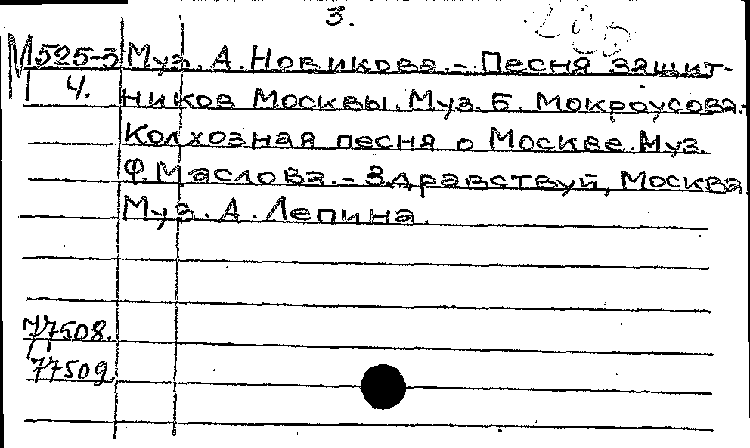 3.
205
М525-3 Муз. А. Новикова. – Песня защит-
4. ников Москвы. Муз. Б. Мокроусова. –
Колхозная песня о Москве. Муз.
Ф. Маслова. – Здравствуй, Москва.
Муз. А. Лепина.
77508.
77509